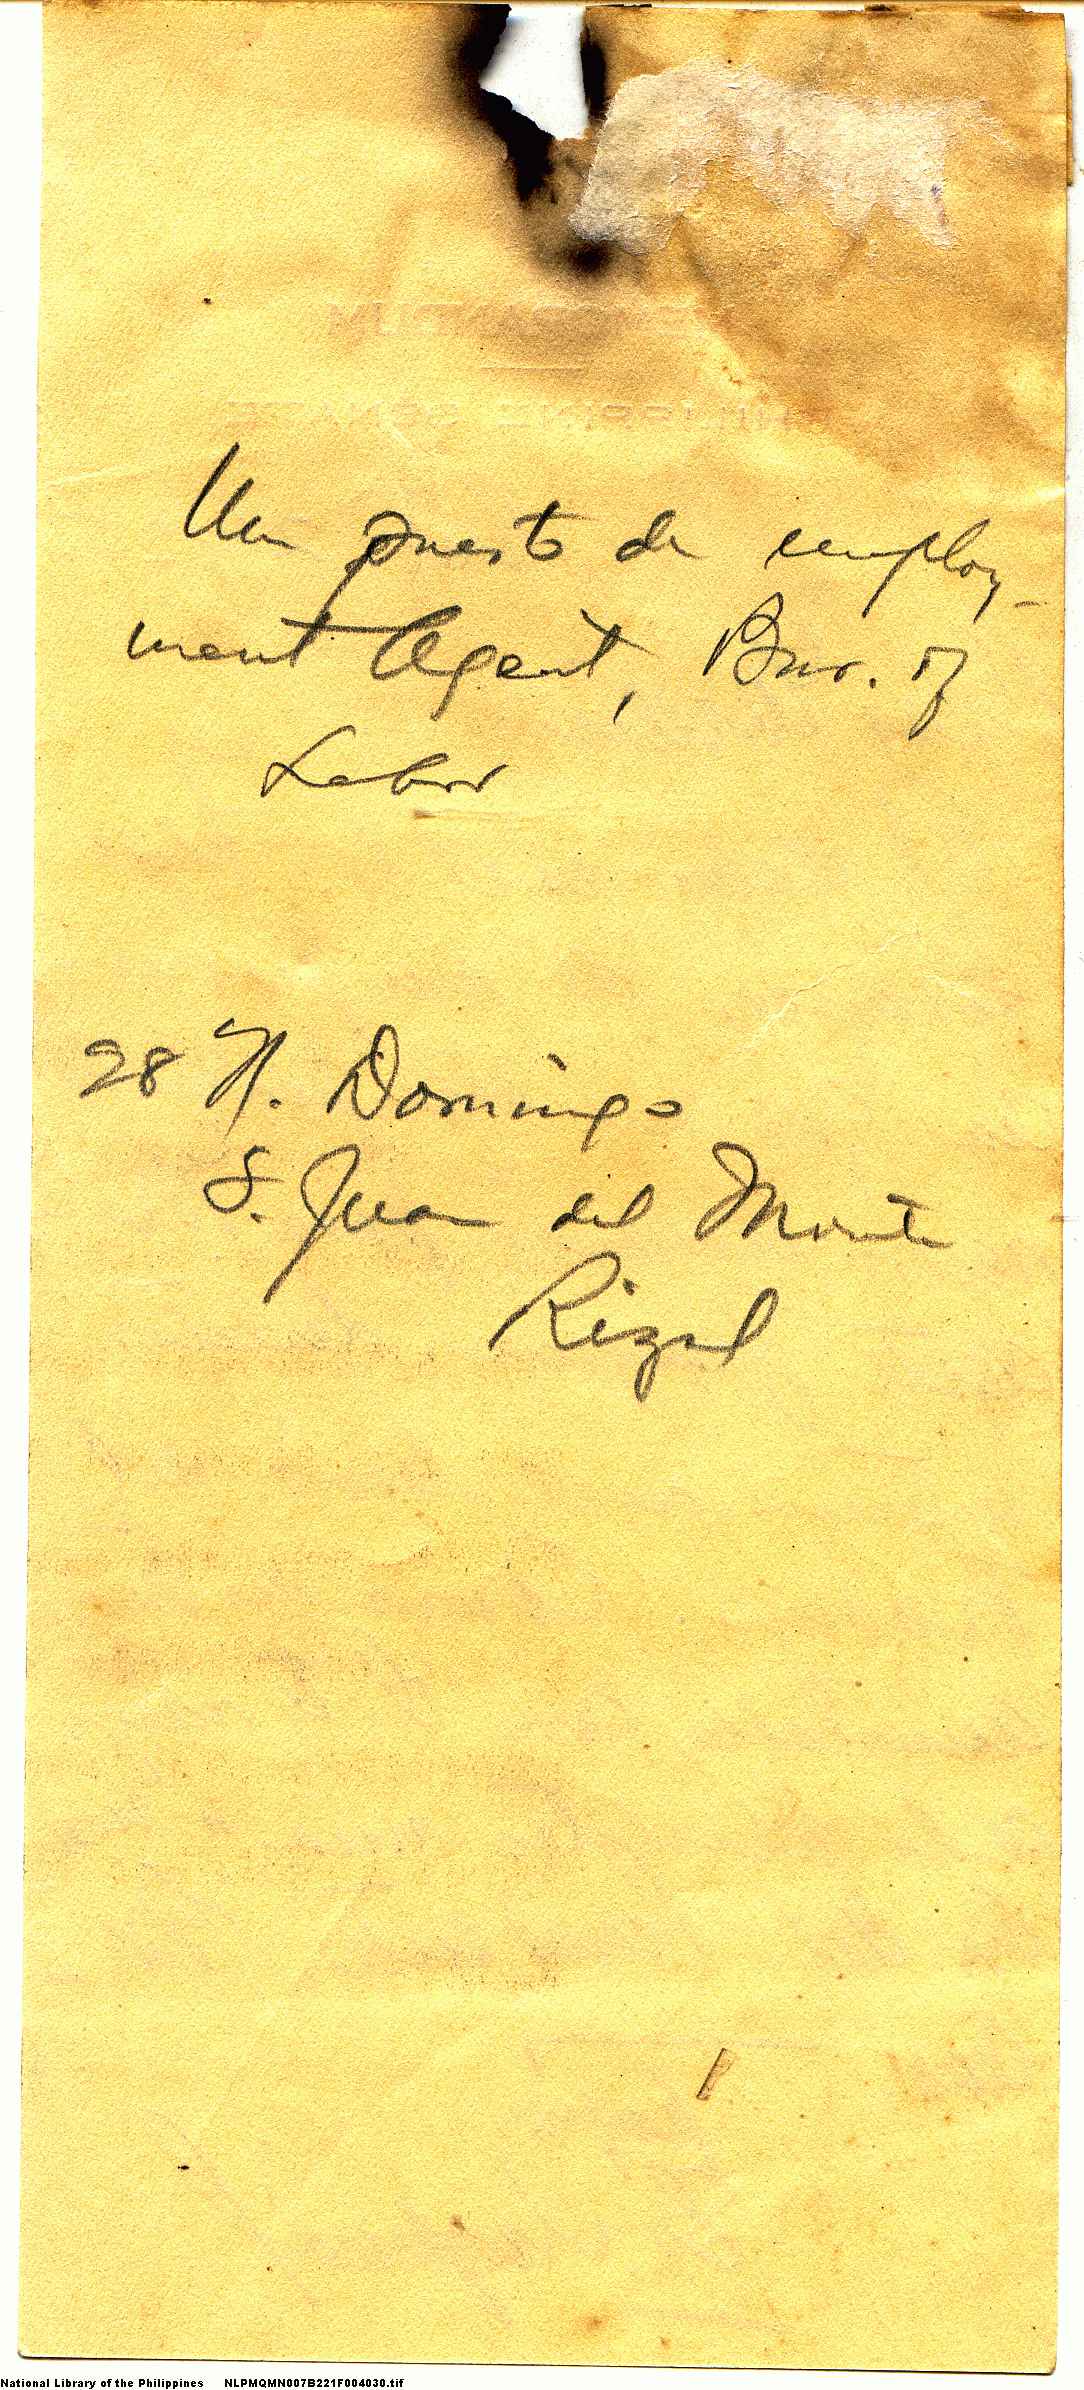 MEMORANDUM
PHILIPPINE SENATE
Un puesto de employ-
ment Agent, Bur. of
Labor
28 N. Domingo
S. Juan del Monte
Rizal
National Library of the Philippines NLPMQMN007B221F004030.tif